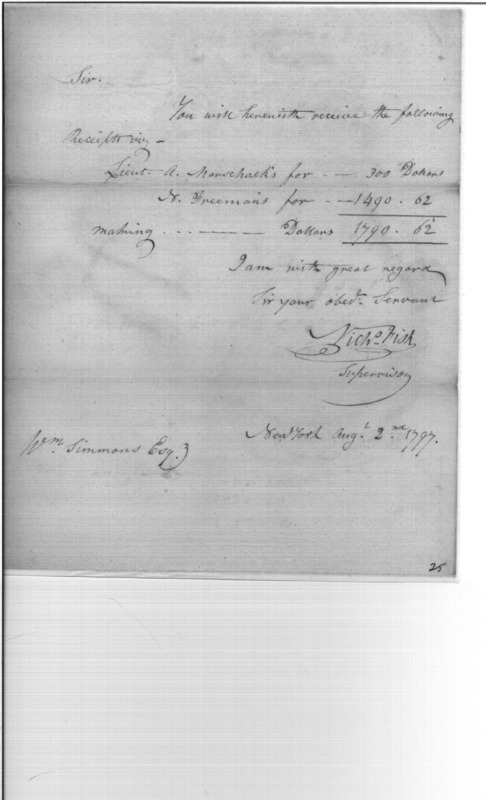 Sir.
You will herewith receive the following
Receipts viz -
Lieut. A. Marschack's for -- 300 Dollars
N. Freeman's for -- 1490. 62
making ---- Dollars 1790. 62
I am with great regard
Sir your obedt. Servant
Nichs Fish
Supervisor
New York Augt. 2nd 1797.
Wm. Simmons Esq.
25